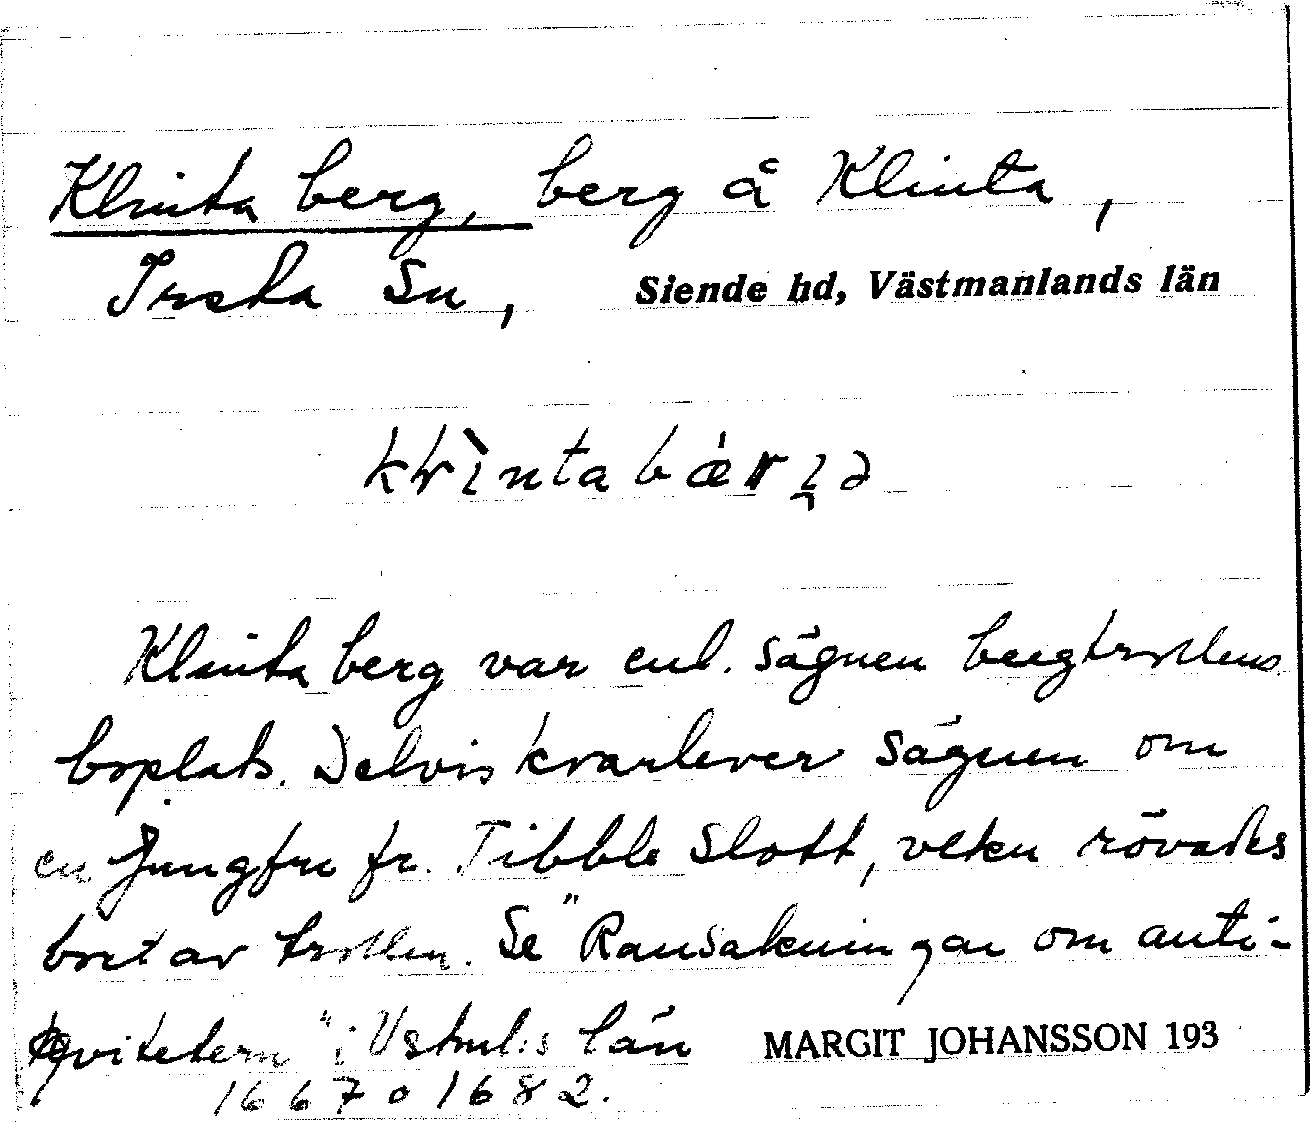 Klinta berg, berg å Klinta,
Irsta Sn, Siende hd, Västmanlands län
klìntabærɩ̯ə
Klinta berg var enl. sägnen bergtrollens
boplats. Delvis kvarlever sägnen om
en Jungfru fr. Tibble Slott, vlken rövades
bort av trollen. Se "Ransakningar om anti-
kviteterna" i Vstml:s län MARGIT JOHANSSON 193
1667 o 1682.